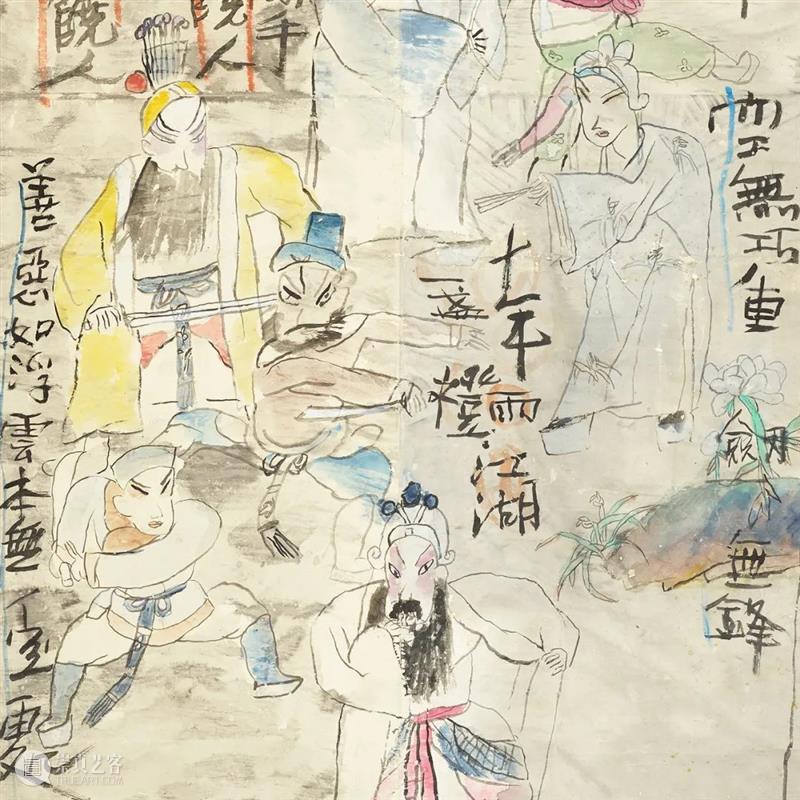 無巧重
劍無鋒
十年
雨江湖
一盞
手
饒人
饒人
善惡如浮雲本無
崇真艺客
TRUEART.COM